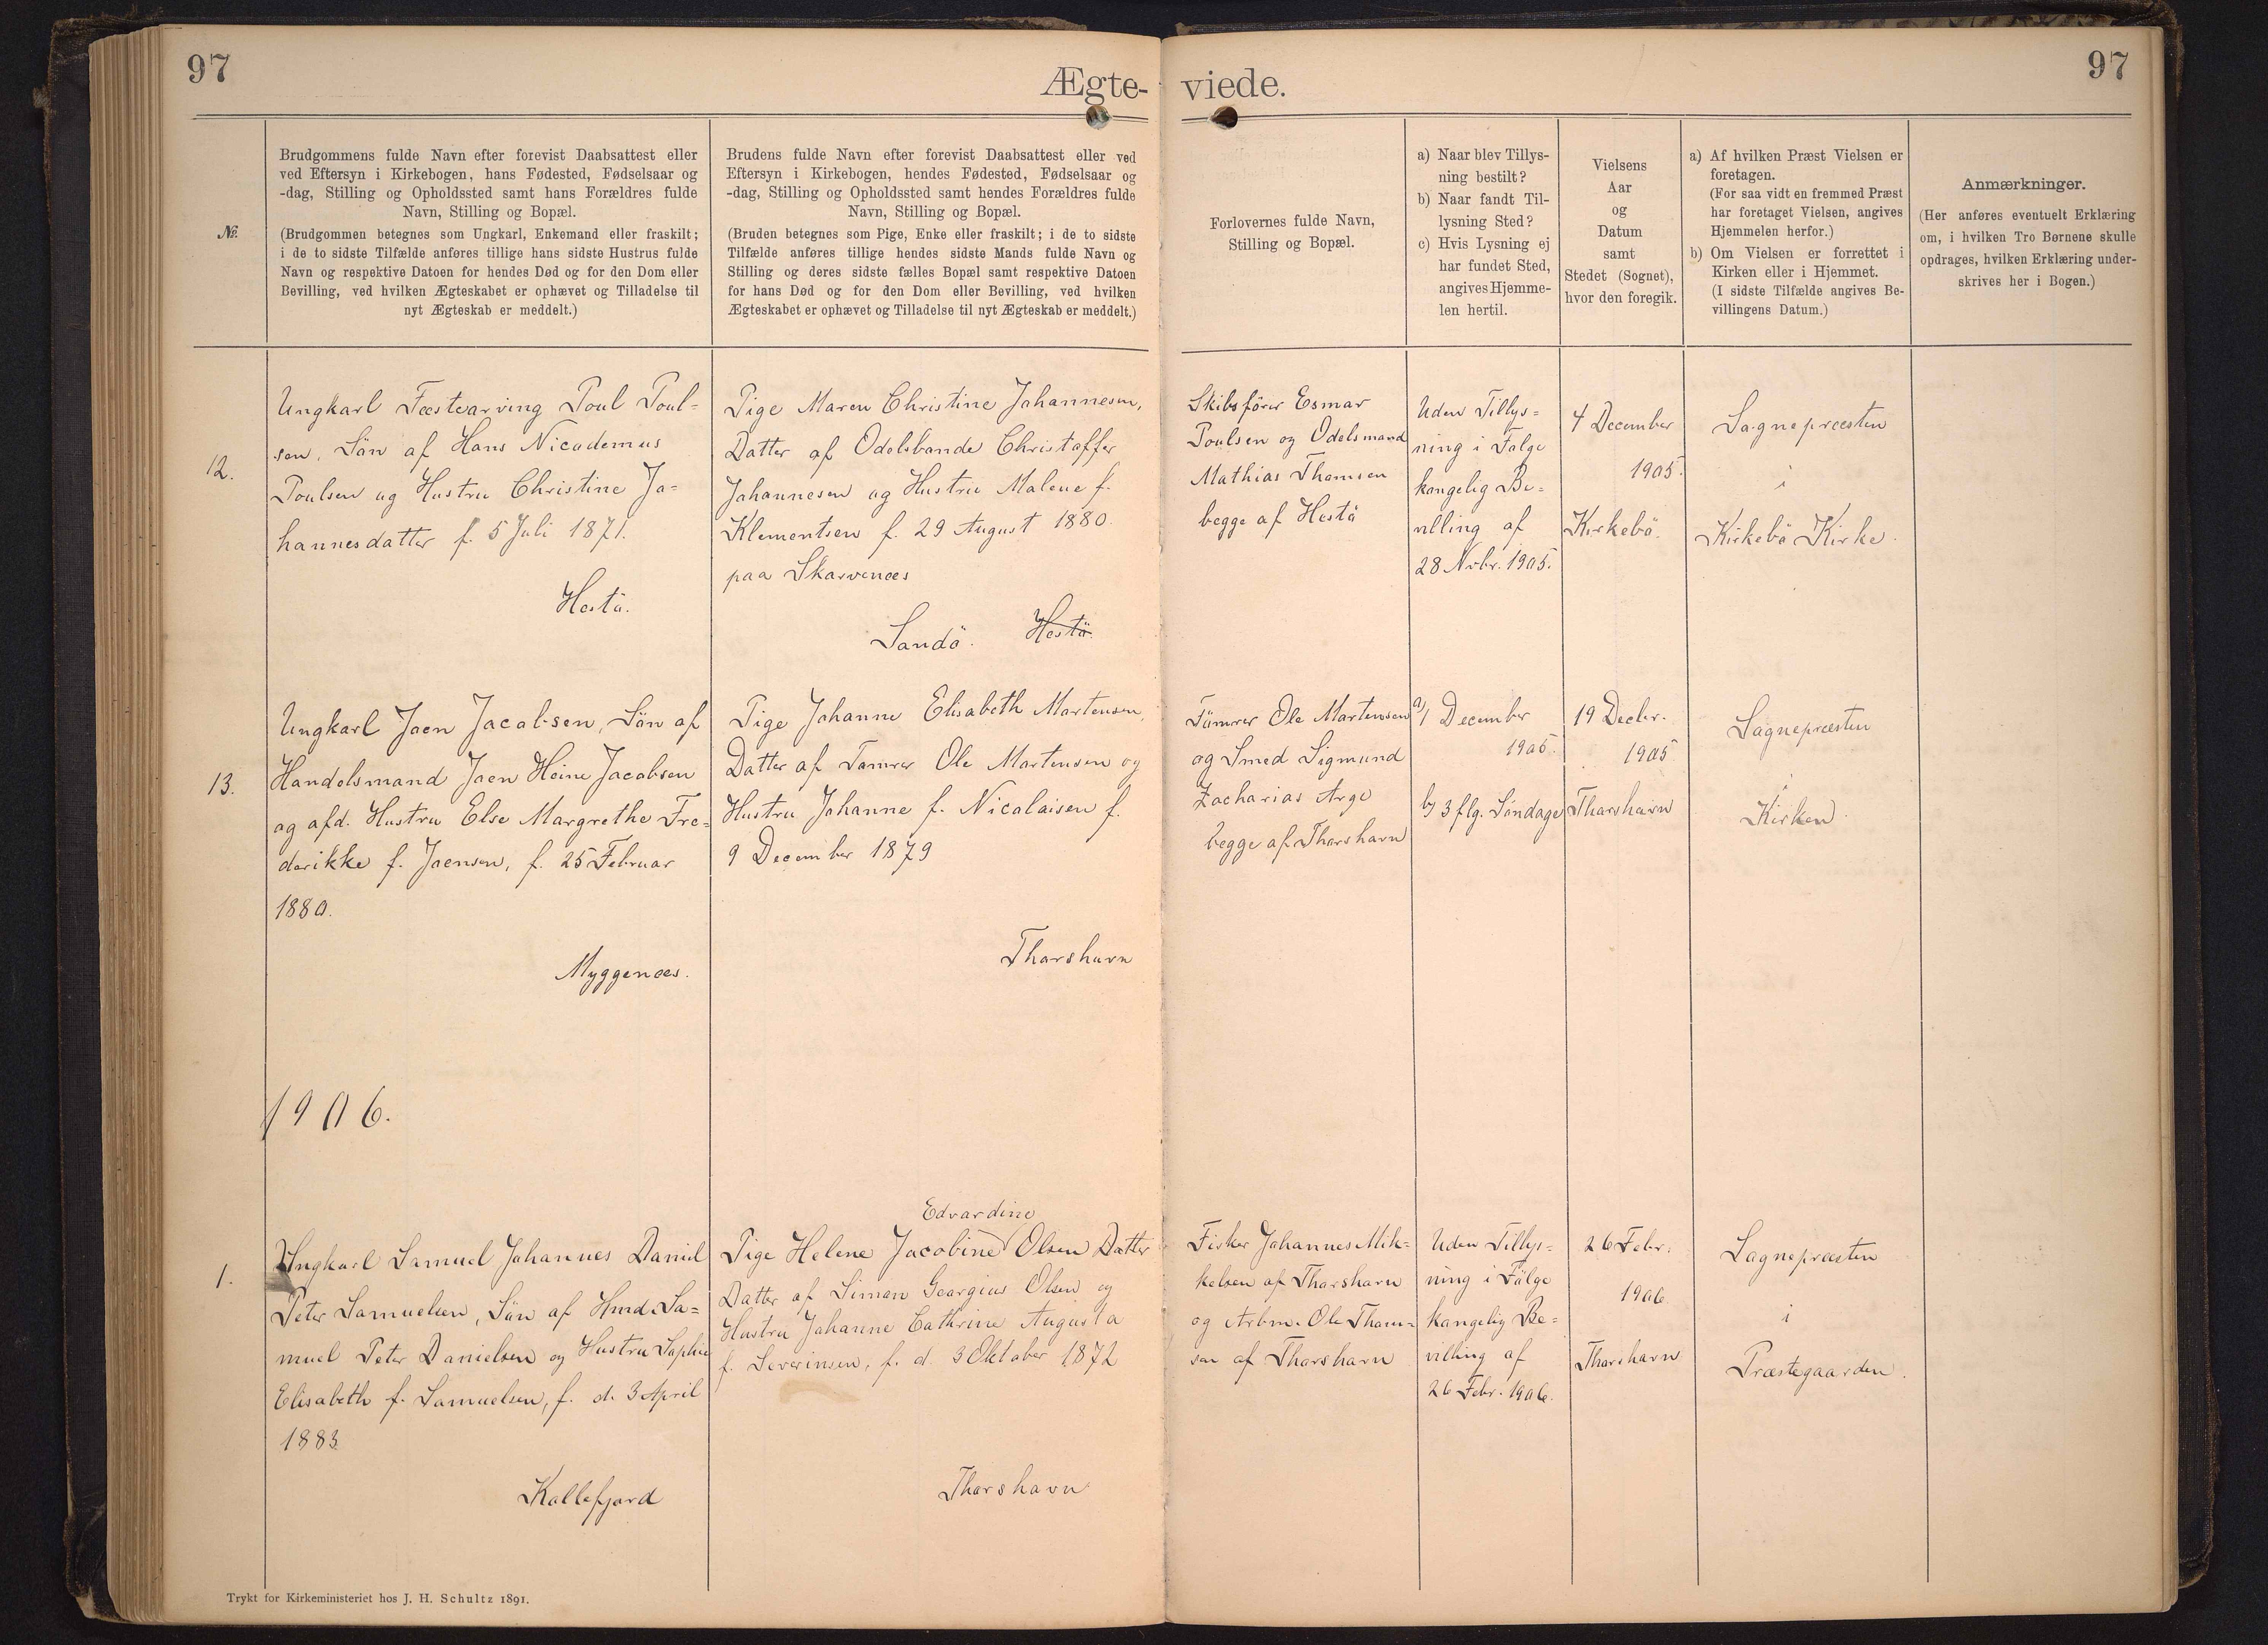 97
97
Ægte-
viede.
№.
Brudgommens fulde Navn efter forevist Daabsattest eller
ved Eftersyn i Kirkebogen, hans Fødested, Fødselsaar og
-dag, Stilling og Opholdssted samt hans Forældres fulde
Navn, Stilling og Bopæl.
(Brudgommen betegnes som Ungkarl, Enkemand eller fraskilt;
i de to sidste Tilfælde anføres tillige hans sidste Hustrus fulde
Navn og respektive Datoen for hendes Død og for den Dom eller
Bevilling, ved hvilken Ægteskabet er ophævet og Tilladelse til
nyt Ægteskab er meddelt.)
Brudens fulde Navn efter forevist Daabsattest eller ved
Eftersyn i Kirkebogen, hendes Fødested, Fødselsaar og
-dag, Stilling og Opholdssted samt hendes Forældres fulde
Navn, Stilling og Bopæl.
(Bruden betegnes som Pige, Enke eller fraskilt; i de to sidste
Tilfælde anføres tillige hendes sidste Mands fulde Navn og
Stilling og deres sidste fælles Bopæl samt respektive Datoen
for hans Død og for den Dom eller Bevilling, ved hvilken
Ægteskabet er ophævet og Tilladelse til nyt Ægteskab er meddelt.)
Forlovernes fulde Navn,
Stilling og Bopæl.
a) Naar blev Tillys-
ning bestilt?
b) Naar fandt Til-
lysning Sted?
c) Hvis Lysning ej
har fundet Sted,
angives Hjemme-
len hertil.
Vielsens
Aar
og
Datum
samt
Stedet (Sognet),
hvor den foregik.
a) Af hvilken Præst Vielsen er
foretagen.
(For saa vidt en fremmed Præst
har foretaget Vielsen, angives
Hjemmelen herfor.)
b) Om Vielsen er forrettet i
Kirken eller i Hjemmet.
(I sidste Tilfælde angives Be-
villingens Datum.)
Anmærkninger.
(Her anføres eventuelt Erklæring
om, i hvilken Tro Børnene skulle
opdrages, hvilken Erklæring under-
skrives her i Bogen.)
12.
Ungkarl Fæstearving Poul Poul-
sen, Sön af Hans Nicodemus
Poulsen og Hustru Christine Jo-
hannesdatter f. 5 Juli 1871.
Hestö.
Pige Maren Christine Johannesen,
Datter af Odelsbonde Christoffer
Johannesen og Hustru Malene f.
Klementsen f. 29 August 1880.
paa Skarvenæs
Sandö. Hestö.
Skibsförer Esmar
Poulsen og Odelsmand
Mathias Thomsen
begge af Hestö
Uden Tillys-
ning i Følge
kongelig Be-
villing af
28 Novbr. 1905.
4 December
1905.
Kirkebö.
Sognepræsten
i
Kirkebö Kirke.
13.
Ungkarl Joen Jacobsen, Sön af
Handelsmand Joen Heine Jacobsen
og afd. Hustru Else Margrethe Fre-
derikke f. Joensen, f. 25 Februar
1880.
Myggenæs.
Pige Johanne Elisabeth Mortensen,
Datter af Tømrer Ole Mortensen og
Hustru Johanne f. Nicolaisen f.
9 December 1879
Thorshavn
Tömrer Ole Mortensen
og Smed Sigmund
Zacharias Arge
begge af Thorshavn
a) 1 December
1905.
b) 3 flg. Søndage
19 Decbr.
1905
Thorshavn
Sognepræsten
i
Kirken.
1906.
1.
Ungkarl Samuel Johannes Daniel
Peter Samuelsen, Sön af Hmd. Sa-
muel Peter Danielsen og Hustru Sophie
Elisabeth f. Samuelsen, f. d. 3 April
1883
Kollefjord
Edvardine
Pige Helene Jacobine Olsen Datter
Datter af Simon Georgius Olsen og
Hustru Johanne Cathrine Augusta
f. Severinsen, f. d. 3 Oktober 1872
Thorshavn
Fisker Johannes Mik-
kelsen af Thorshavn
og Arbm. Ole Thom-
sen af Thorshavn
Uden Tillys-
ning i Følge
kongelig Be-
villing af
26 Febr. 1906.
26 Febr.
1906
Thorshavn
Sognepræsten
i
Præstegaarden.
Trykt for Kirkeministeriet hos J. H. Schultz 1891.